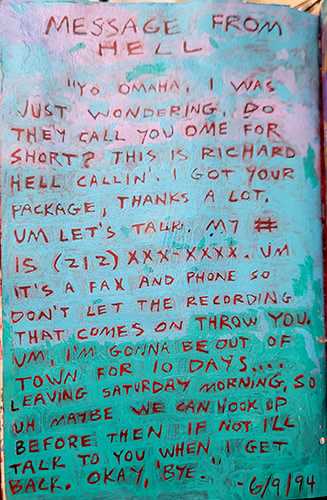 MESSAGE FROM
HELL
"YO OMAHA, I WAS
JUST WONDERING, DO
THEY CALL YOU OME FOR
SHORT? THIS IS RICHARD
HELL CALLIN'. I GOT YOUR
PACKAGE, THANKS A LOT.
UM LET'S TALK. MY #
IS (212) XXX-XXXX. UM
IT'S A FAX AND PHONE SO
DON'T LET THE RECORDING
THAT COMES ON THROW YOU.
UM, I'M GONNA BE OUT OF
TOWN FOR 10 DAYS....
LEAVING SATURDAY MORNING, SO
UH MAYBE WE CAN HOOK UP
BEFORE THEN IF NOT I'LL
TALK TO YOU WHEN I GET
BACK. OKAY, 'BYE."
-6/9/94